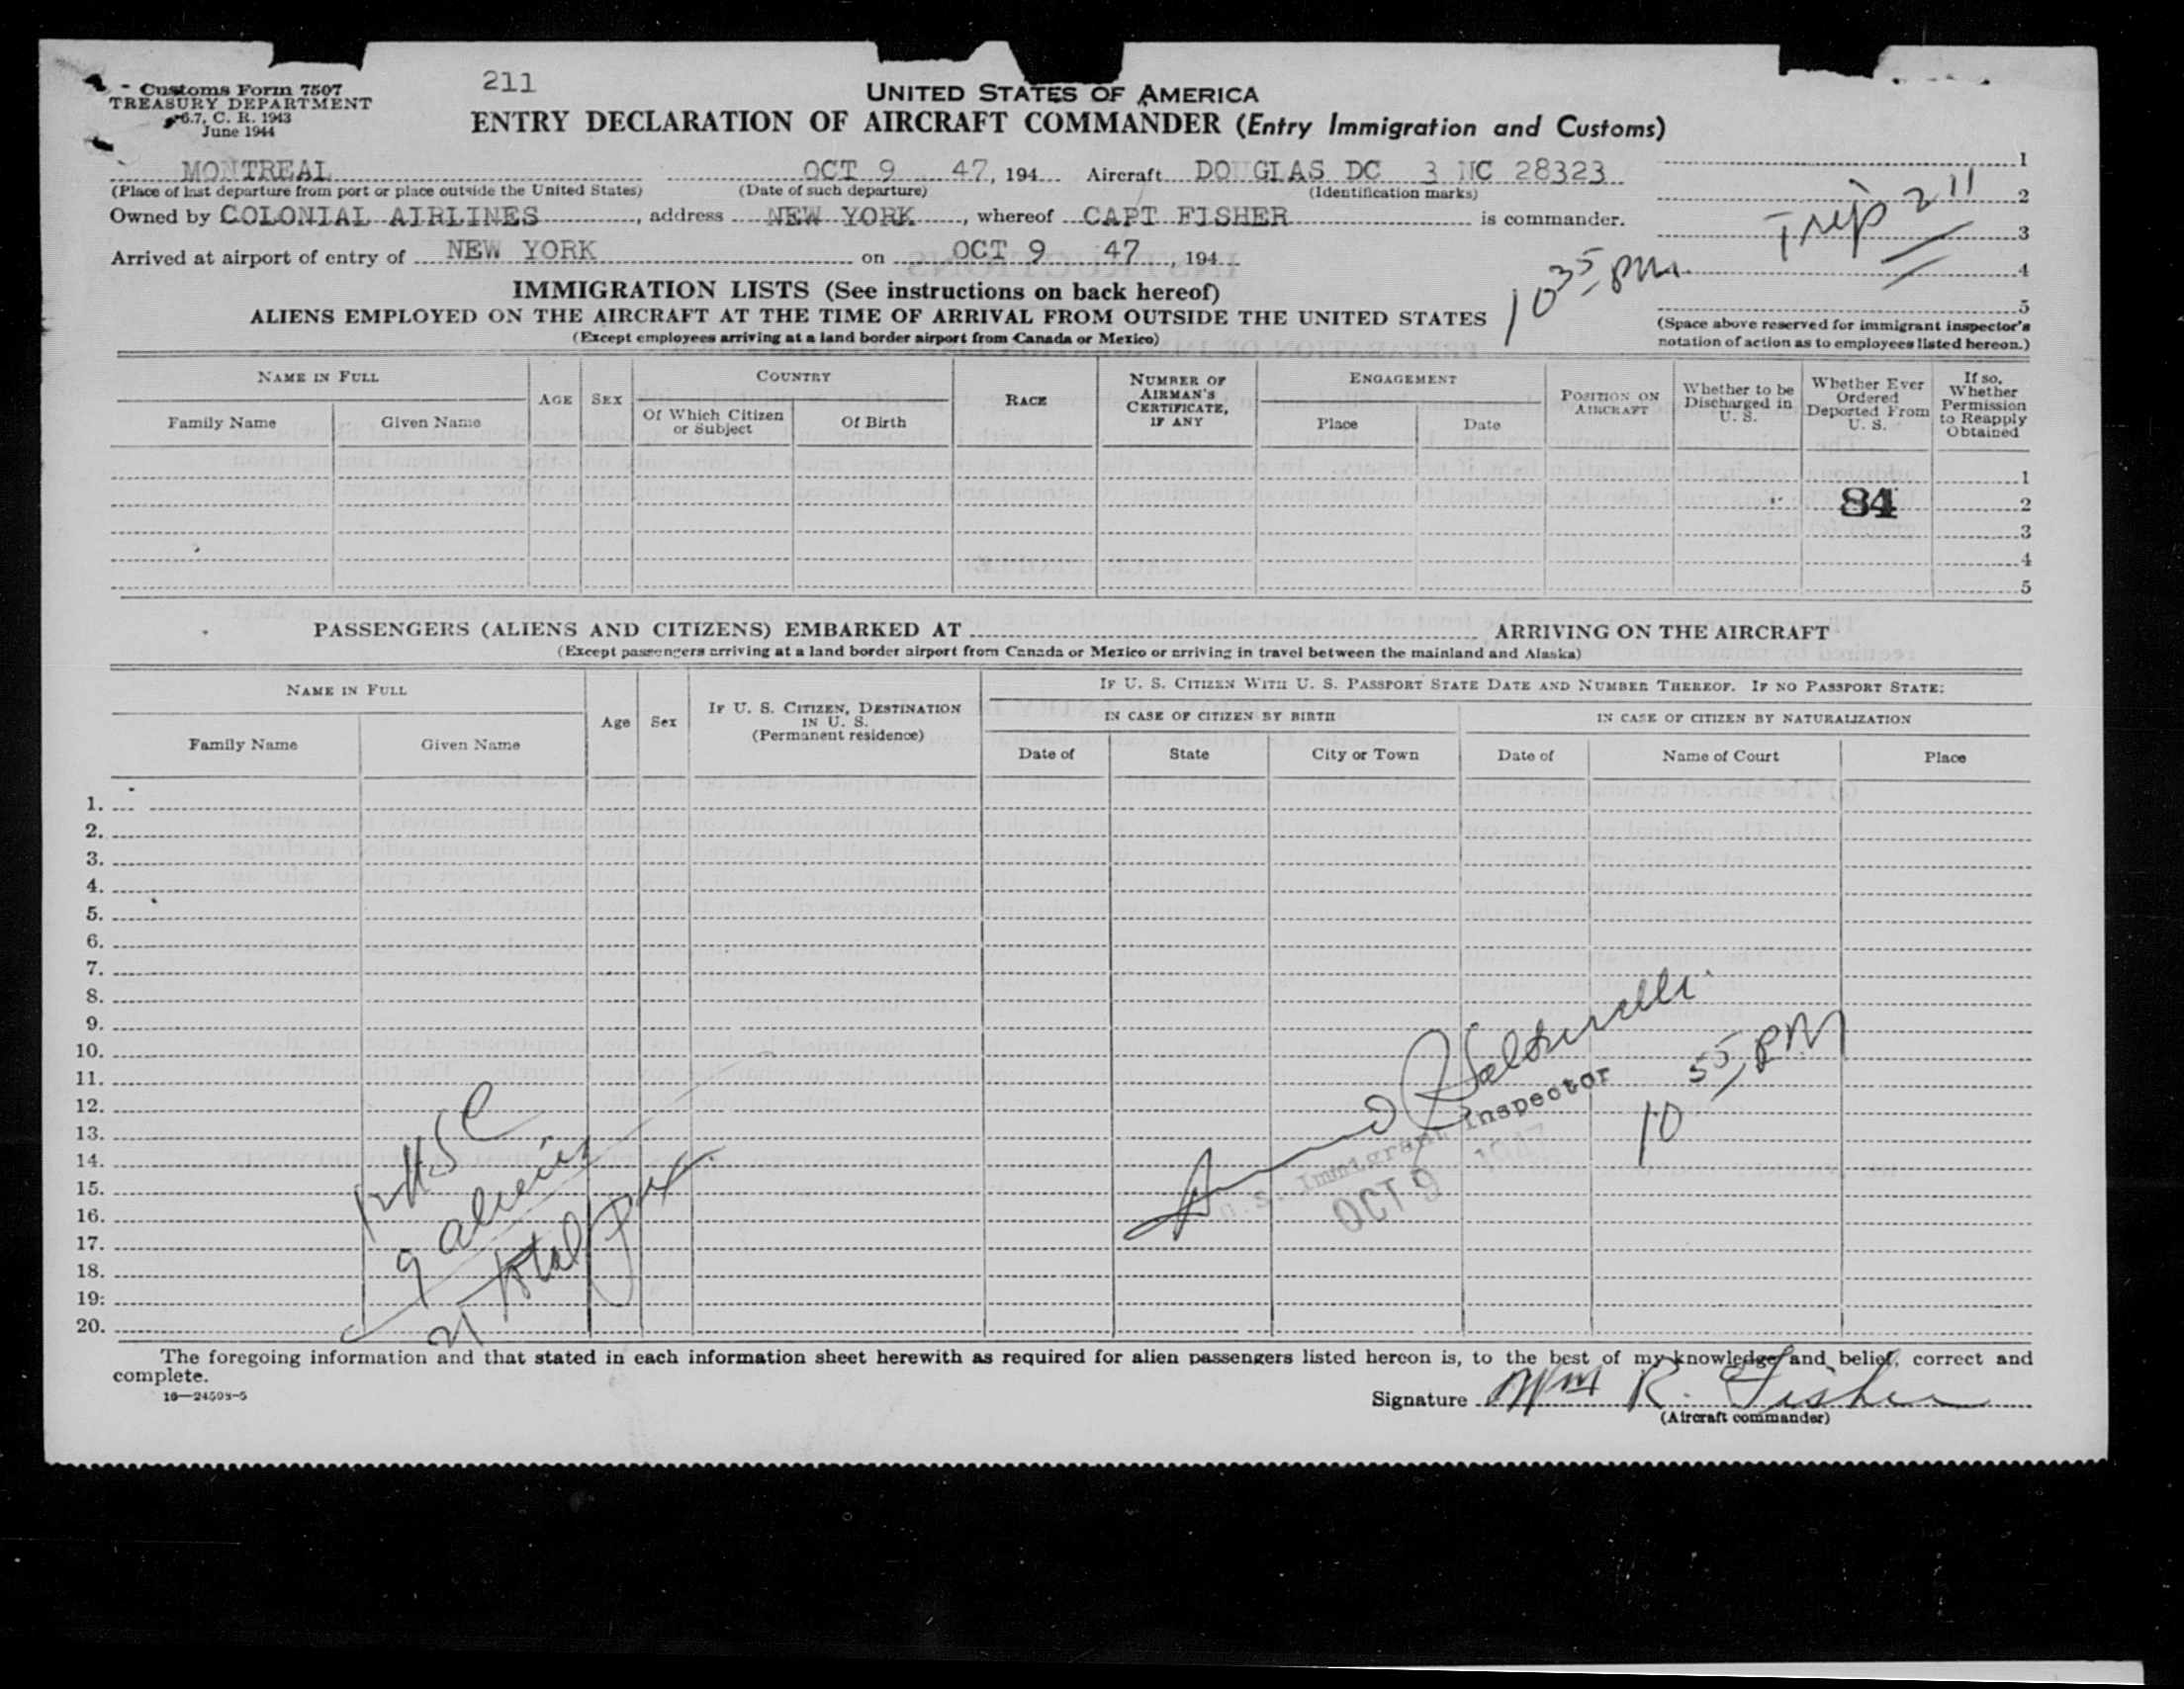 Customs Form 7507
TREASURY DEPARTMENT
6.7, C. R. 1943
June 1944
211
UNITED STATES OF AMERICA
ENTRY DECLARATION OF AIRCRAFT COMMANDER (Entry Immigration and Customs)
MONTREAL OCT 9 47, 194 Aircraft DOUGLAS DC 3 NC 28323
(Place of last departure from port or place outside the United States) (Date of such departure) (Identification marks)
Owned by COLONIAL AIRLINES, address NEW YORK, whereof CAPT FISHER is commander.
Arrived at airport of entry of NEW YORK on OCT 9 47, 194
1
2
3
4
5
Trip 211
10 35 PM
(Space above reserved for immigrant inspector's
notation of action as to employees listed hereon.)
IMMIGRATION LISTS (See instructions on back hereof)
ALIENS EMPLOYED ON THE AIRCRAFT AT THE TIME OF ARRIVAL FROM OUTSIDE THE UNITED STATES
(Except employees arriving at a land border airport from Canada or Mexico)
NAME IN FULL
Family Name
Given Name
AGE
SEX
COUNTRY
Of Which Citizen or Subject
Of Birth
RACE
NUMBER OF AIRMAN'S CERTIFICATE, IF ANY
ENGAGEMENT
Place
Date
POSITION ON AIRCRAFT
Whether to be Discharged in U. S.
Whether Ever Ordered Deported From U. S.
If so, Whether Permission to Reapply Obtained
1
84
2
3
4
5
PASSENGERS (ALIENS AND CITIZENS) EMBARKED AT ARRIVING ON THE AIRCRAFT
(Except passengers arriving at a land border airport from Canada or Mexico or arriving in travel between the mainland and Alaska)
NAME IN FULL
Family Name
Given Name
Age
Sex
IF U. S. CITIZEN, DESTINATION IN U. S.
(Permanent residence)
IF U. S. CITIZEN WITH U. S. PASSPORT STATE DATE AND NUMBER THEREOF. IF NO PASSPORT STATE:
IN CASE OF CITIZEN BY BIRTH
IN CASE OF CITIZEN BY NATURALIZATION
Date of
State
City or Town
Date of
Name of Court
Place
1.
2.
3.
4.
5.
6.
7.
8.
9.
10.
11.
12.
13.
14.
15.
16.
17.
18.
19.
20.
12 USC
9 aliens
21 total
U.S. Immigrant Inspector
OCT 9 1947
10 55 PM
The foregoing information and that stated in each information sheet herewith as required for alien passengers listed hereon is, to the best of my knowledge and belief, correct and
complete.
16—24508-5
Signature Wm R. Fisher
(Aircraft commander)